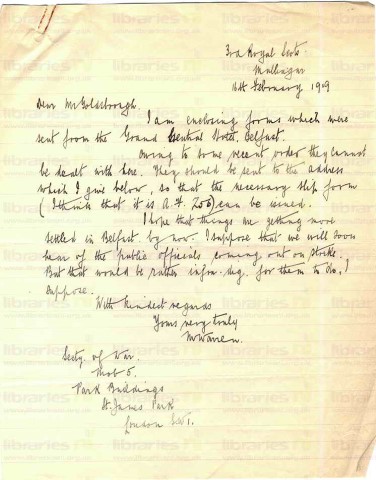 3rd Royal Scots
Mullingar
16th February 1919
Dear Mr Goldsbrough.
I am enclosing forms which were
sent from the Grand Central Hotel, Belfast.
Owing to some recent order they cannot
be dealt with here. They should be sent to the address
which I give below, so that the necessary slip form
(I think that it is A.F. Z50) can be issued.
I hope that things are getting more
settled in Belfast by now. I suppose that we will soon
hear of the public officials coming out on strike.
But that would be rather infra. dig. for them to do, I
suppose.
With kindest regards
Yours very truly
M Warren.
Secty. of War.
Park Buildings
St. James Park
London S.W.1.